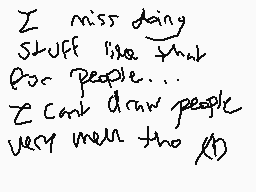 I miss doing
stuff like that
for people...
I cant draw people
very well tho